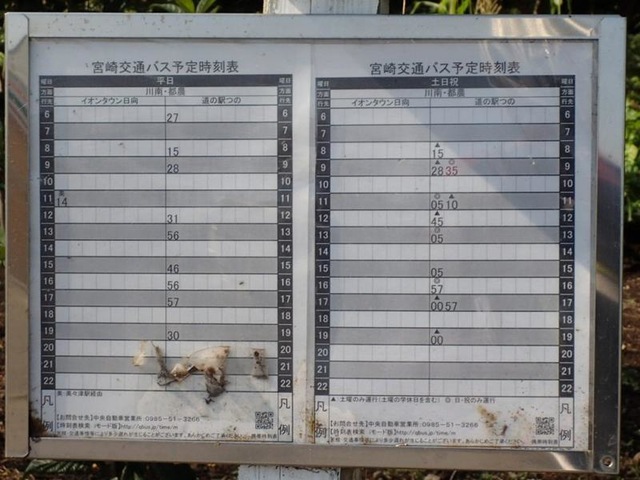 宮崎交通バス予定時刻表
曜日 平日 曜日
方面 川南・都農 方面
行先 イオンタウン日向 道の駅つの 行先
6 27 6
7 7
8 15 8
9 28 9
10 10
11 美 14 11
12 31 12
13 56 13
14 14
15 46 15
16 56 16
17 57 17
18 18
19 30 19
20 20
21 21
22 22
美:美々津駅経由
凡例
【お問合せ先】中央自動車営業所:0985-51-3266
【時刻表検索 iモード版】http://qbus.jp/time/m
携帯時刻表
宮崎交通バス予定時刻表
曜日 土日祝 曜日
方面 川南・都農 方面
行先 イオンタウン日向 道の駅つの 行先
6 6
7 7
8 ▲15 8
9 ▲28 ◎35 9
10 10
11 ◎05 ▲10 11
12 ▲45 12
13 ◎05 13
14 14
15 05 15
16 ◎57 16
17 ▲00 57 17
18 18
19 ▲00 19
20 20
21 21
22 22
▲:土曜のみ運行(土曜の学休日を含む) ◎:日・祝のみ運行
凡例
【お問合せ先】中央自動車営業所:0985-51-3266
【時刻表検索 iモード版】http://qbus.jp/time/m
携帯時刻表